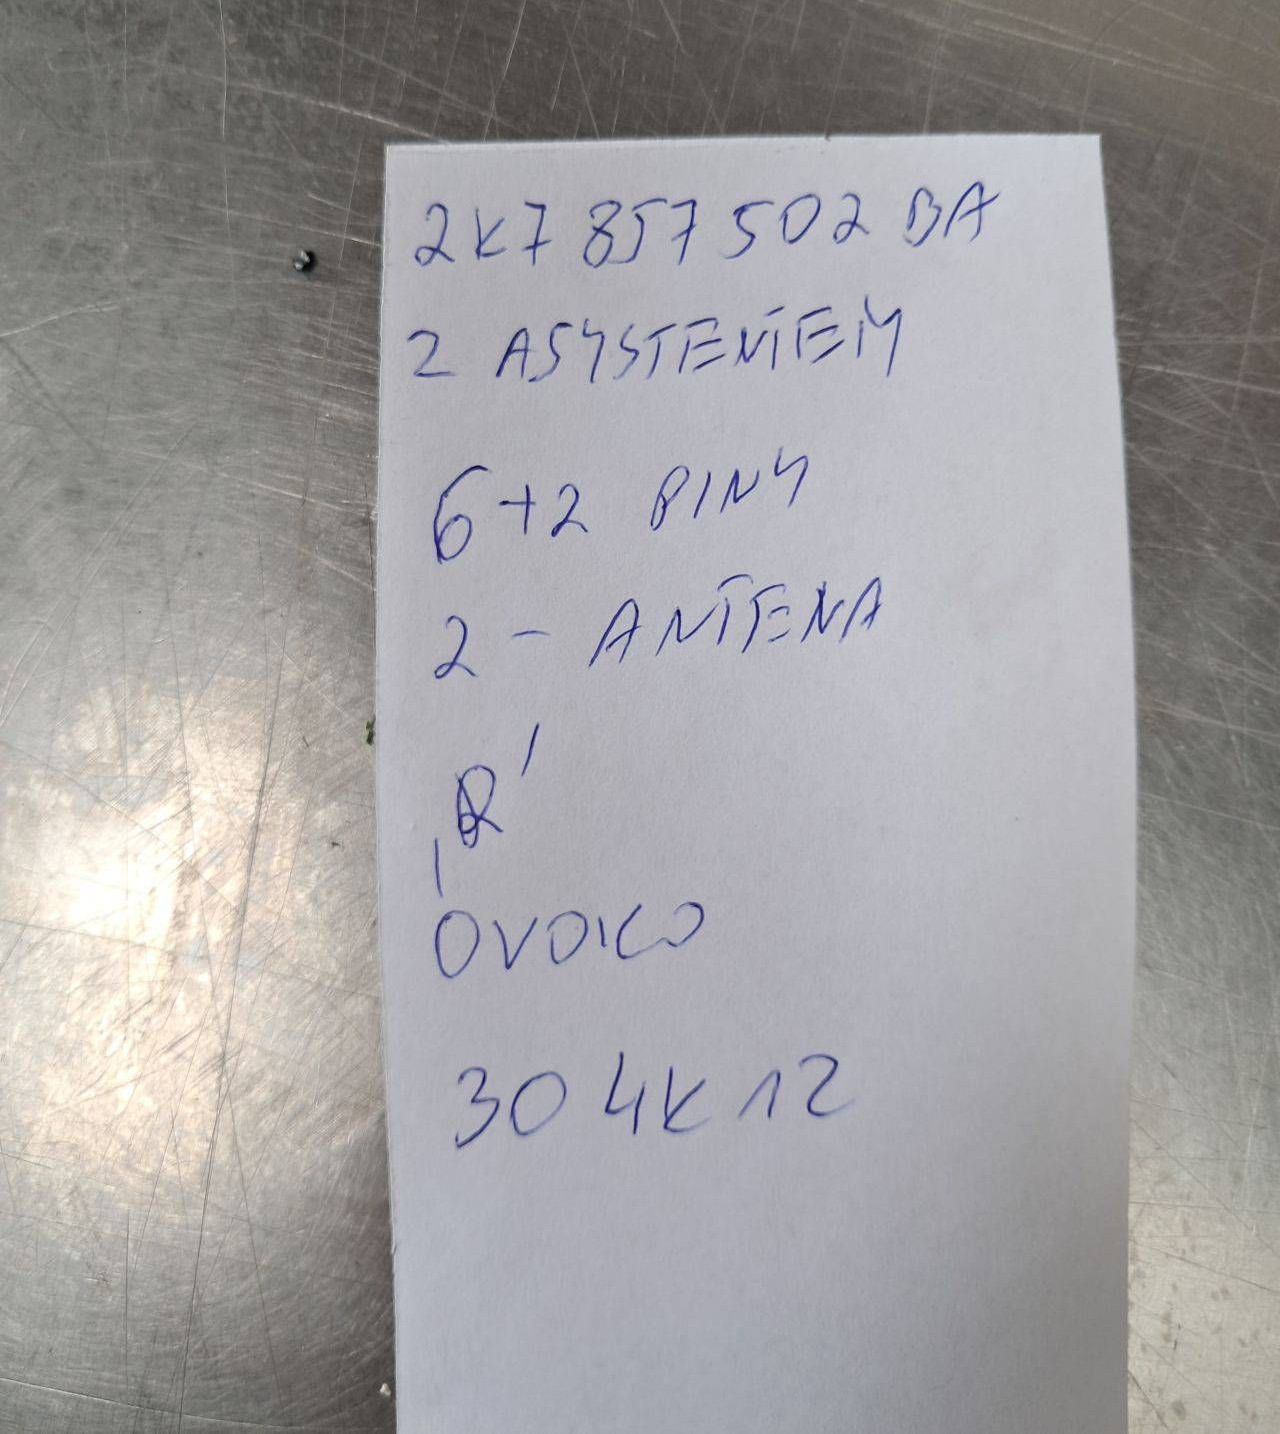 2K7 857 502 BA
Z ASYSTENTEM
6+2 PINY
2 - ANTENA
,R'
OVOKO
304K12